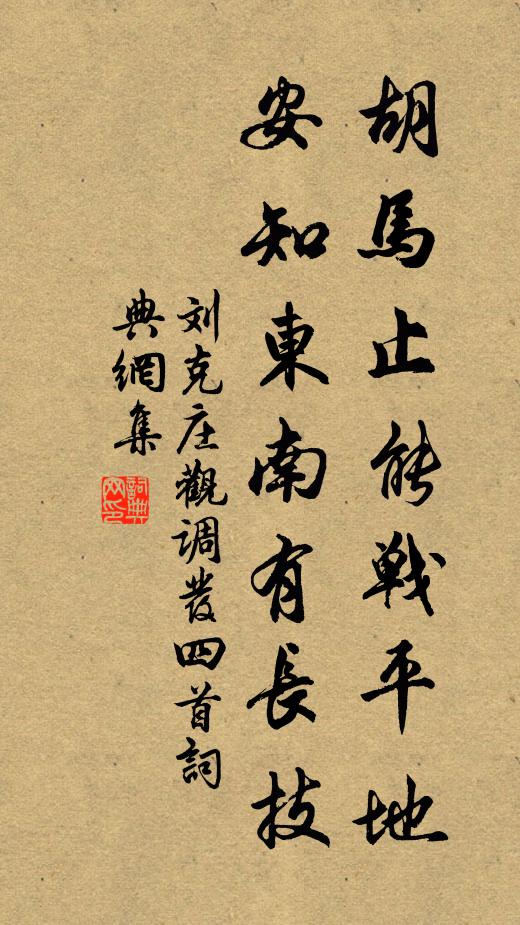 胡馬止能戰平地
安知東南有長技
刘克庄觀调發四首詞
典網集
詞典网印